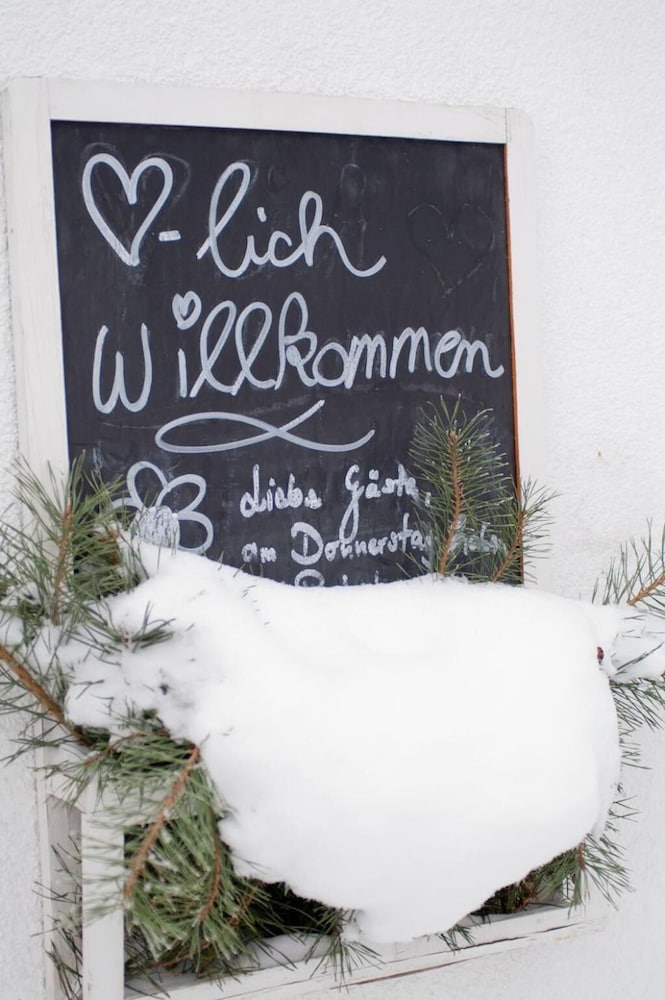 ♡-lich
Willkommen
Liebe Gäste,
am Donnerstag